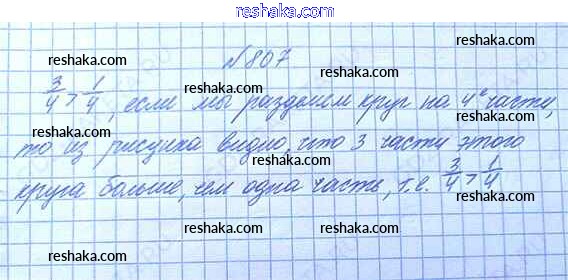 reshaka.com
№807
reshaka.com reshaka.com
3/4 > 1/4, если мы разделим круг на 4е части,
reshaka.com reshaka.com reshaka.com
то из рисунка видно, что 3 части этого
reshaka.com reshaka.com
круга больше, чем одна часть, т.е. 3/4 > 1/4
reshaka.com reshaka.com reshaka.com
reshaka.com reshaka.com